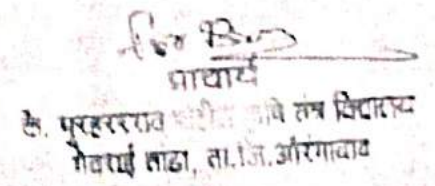 प्राचार्य
के. धुरहरराव कृषि तंत्र विद्यालय
गेवराई तांडा, ता.जि. औरंगाबाद